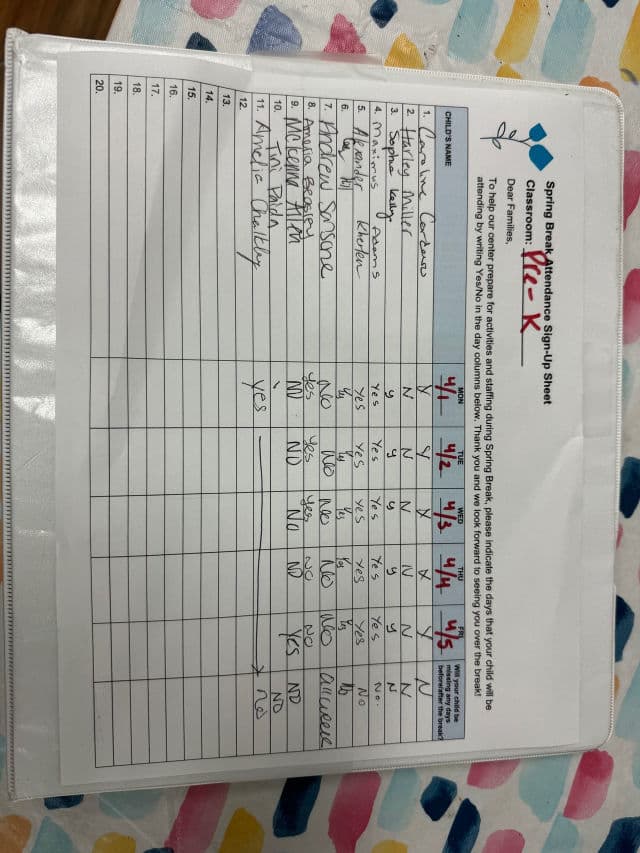 Spring Break Attendance Sign-Up Sheet
Classroom: Pre-K
Dear Families,
To help our center prepare for activities and staffing during Spring Break, please indicate the days that your child will be
attending by writing Yes/No in the day columns below. Thank you and we look forward to seeing you over the break!
CHILD'S NAME MON 4/1 TUE 4/2 WED 4/3 THU 4/4 FRI 4/5 Will your child be missing any days before/after the break?
1. Caroline Y Y Y Y Y N
2. Harley Miller N N N N N N
3. Sophia Kelly y y y y y N
4. Maximus Adams Yes Yes Yes Yes Yes No.
5. Alexander Yes Yes Yes Yes Yes NO
6. Yes Yes Yes Yes Yes No
7. Andrew No No No No No all week
8. Amelia Yes Yes Yes NO NO
9. McKenna Allen NO NO NO NO Yes NO
10. NO
11. Amelia Chalkley yes no
12.
13.
14.
15.
16.
17.
18.
19.
20.